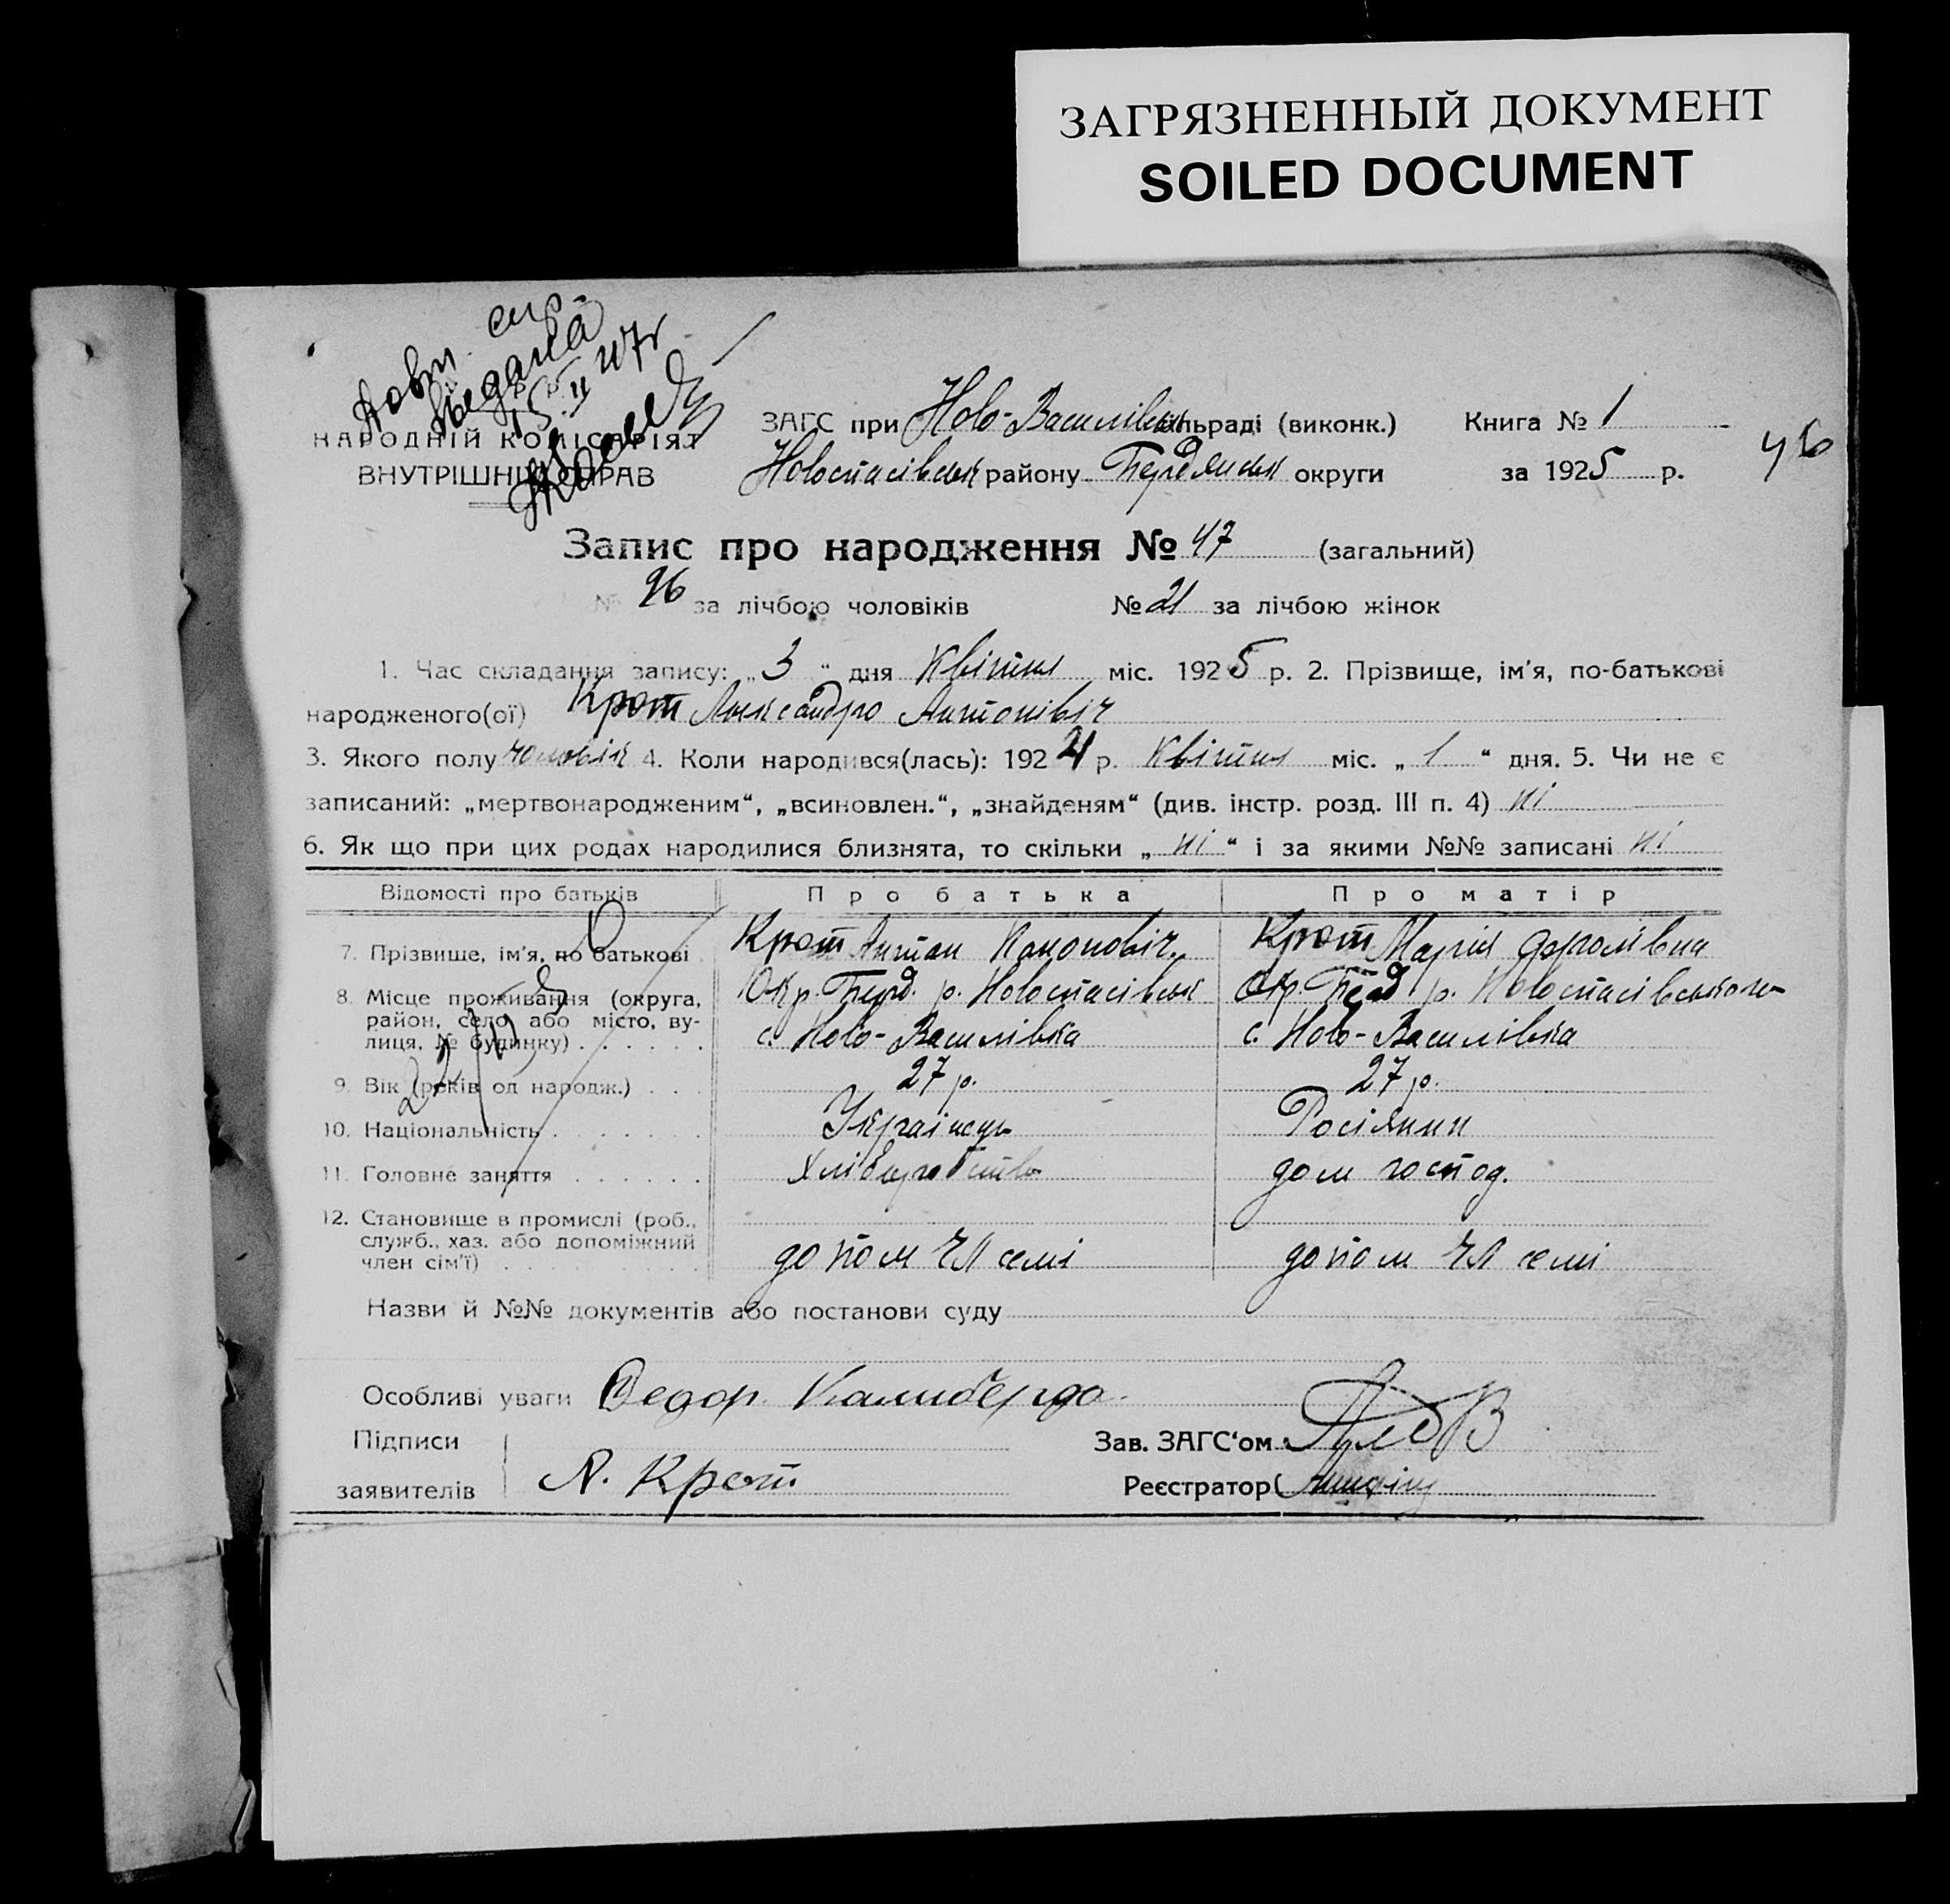 ЗАГРЯЗНЕННЫЙ ДОКУМЕНТ
SOILED DOCUMENT
НАРОДНІЙ КОМІСАРІЯТ
ВНУТРІШНІХ СПРАВ
ЗАГС при Ново-Василівськ сільраді (виконк.) Книга № 1
Новоспасівськ району Бердянськ округи за 1925 р. 46
Запис про народження № 47 (загальний)
№ 26 за лічбою чоловіків № 21 за лічбою жінок
1. Час складання запису: „ 3 “ дня Квітня міс. 1925 р. 2. Прізвище, ім'я, по-батькові
народженого(ої) Крот Александро Антонівіч
3. Якого полу чоловік 4. Коли народився(лась): 192 р. Квітня міс. „ 1 “ дня. 5. Чи не є
записаний: „мертвонародженим“, „всиновлен.“, „знайденям“ (див. інстр. розд. III п. 4) ні
6. Як що при цих родах народилися близнята, то скільки „ ні “ і за якими №№ записані ні
Відомості про батьків Про батька Про матір
7. Прізвище, ім'я, по батькові Крот Антон Кононовіч. Крот Марія Фролівна
8. Місце проживання (округа, район, село або місто, вулиця, № будинку) Окр. Берд. р. Новоспасівськ Окр. Берд р. Новоспасівського
с. Ново-Василівка с. Ново-Василівка
9. Вік (років од народж.) 27 р. 27 р.
10. Національність Українець Росіянин
11. Головне заняття Хліборобство дом господ.
12. Становище в промислі (роб., служб., хаз. або допоміжний член сім'ї) допом чл семі допом чл семі
Назви й №№ документів або постанови суду
Особливі уваги Федор Калиберда
Підписи Зав. ЗАГС'ом
заявителів А. Крот Реєстратор